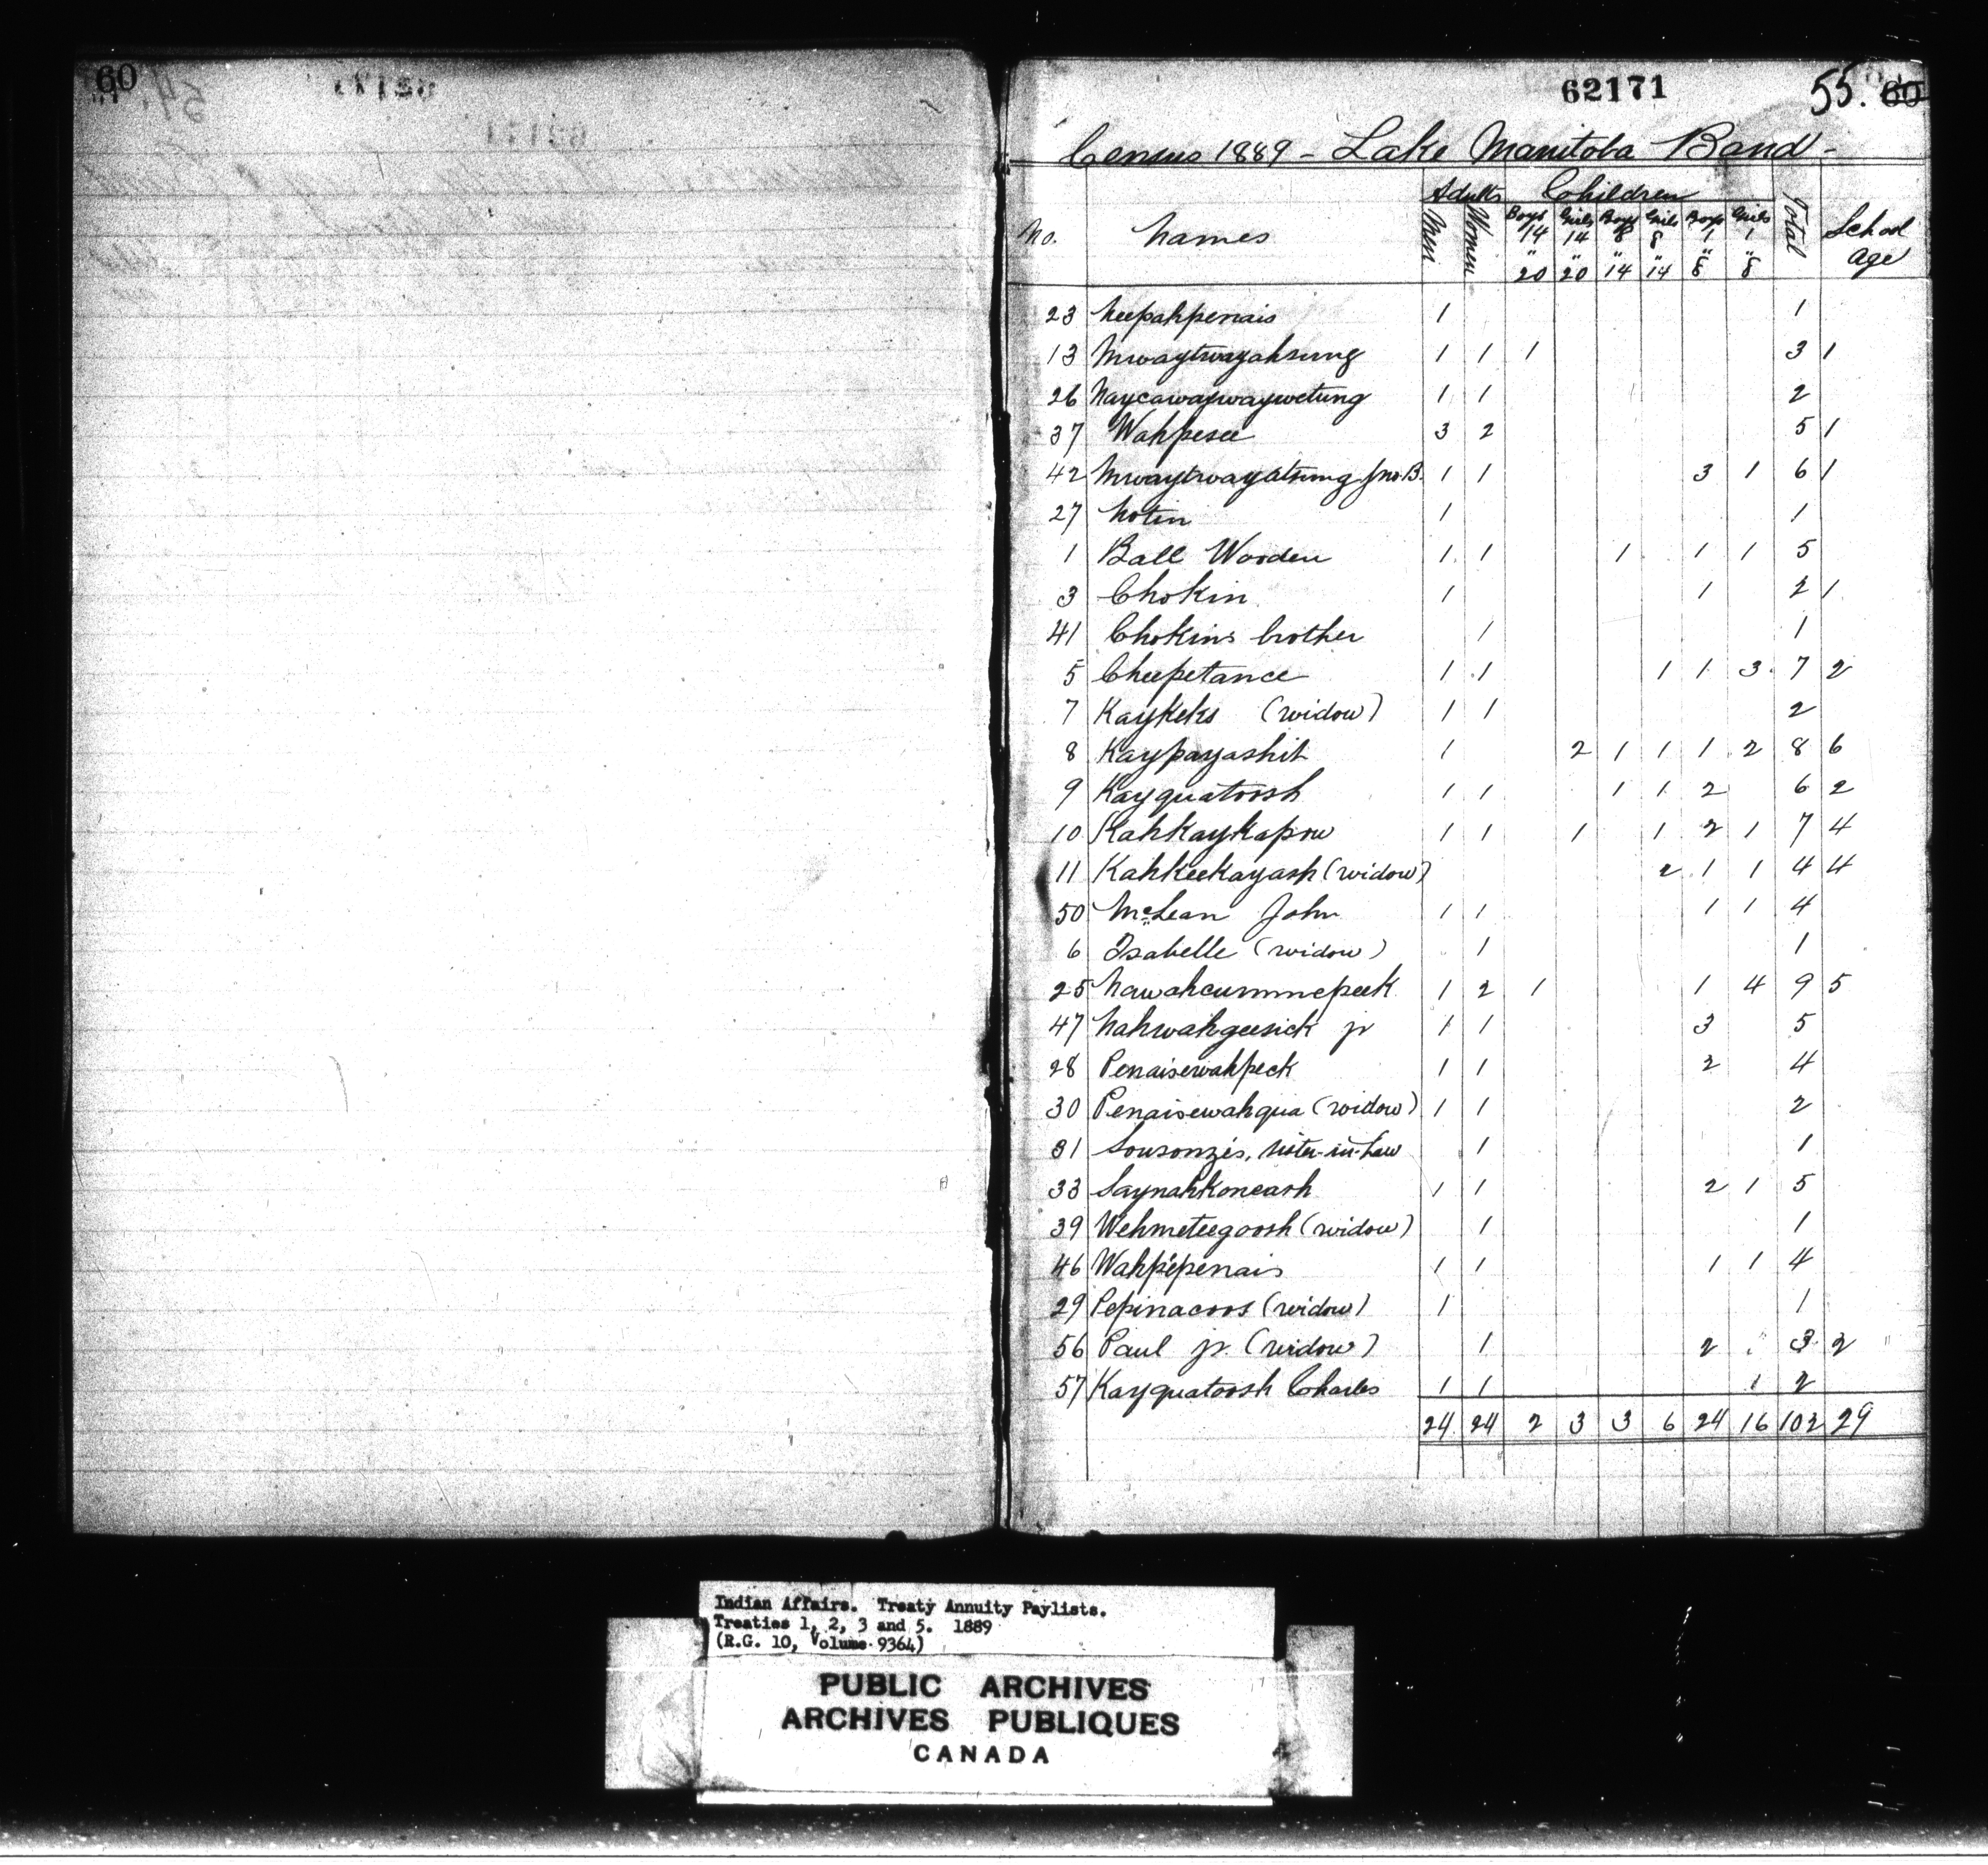 60
62171
55. 60
Census 1889 - Lake Manitoba Band -
Adults Children
No. Names Men Women Boys 14 " 20 Girls 14 " 20 Boys 8 " 14 Girls 8 " 14 Boys 1 " 8 Girls 1 " 8 Total School Age
23 Neepahpenais 1 1
13 Mwaytwayahsung 1 1 1 3 1
26 Naycawaywaywetung 1 1 2
37 Wahpesee 3 2 5 1
42 Mwaytwayahsung Jno. B. 1 1 3 1 6 1
27 Notin 1 1
1 Ball Wooden 1 1 1 1 1 5
3 Chokin 1 1 2 1
41 Chokins brother 1 1
5 Cheepetance 1 1 1 1 3 7 2
7 Kaykeks (widow) 1 1 2
8 Kaypayashit 1 2 1 1 1 2 8 6
9 Kayquatoosh 1 1 1 1 2 6 2
10 Kahkaykapow 1 1 1 1 2 1 7 4
11 Kahkeekayash (widow) 2 1 1 4 4
50 McLean John 1 1 1 1 4
6 Isabelle (widow) 1 1
25 Nawahcummepeek 1 2 1 1 4 9 5
47 Nahwahgeesick jr 1 1 3 5
28 Penaisewahpeck 1 1 2 4
30 Penaisewahqua (widow) 1 1 2
31 Sousonzés, sister-in-law 1 1
33 Saynahkoneash 1 1 2 1 5
39 Wehmeteegoosh (widow) 1 1
46 Wahpepenais 1 1 1 1 4
29 Pepinacoos (widow) 1 1
56 Paul jr. (widow) 1 2 3 2
57 Kayquatoosh Charles 1 1 1 2
24 24 2 3 3 6 24 16 102 29
Indian Affairs. Treaty Annuity Paylists.
Treaties 1, 2, 3 and 5. 1889
(R.G. 10, Volume 9364)
PUBLIC ARCHIVES
ARCHIVES PUBLIQUES
CANADA